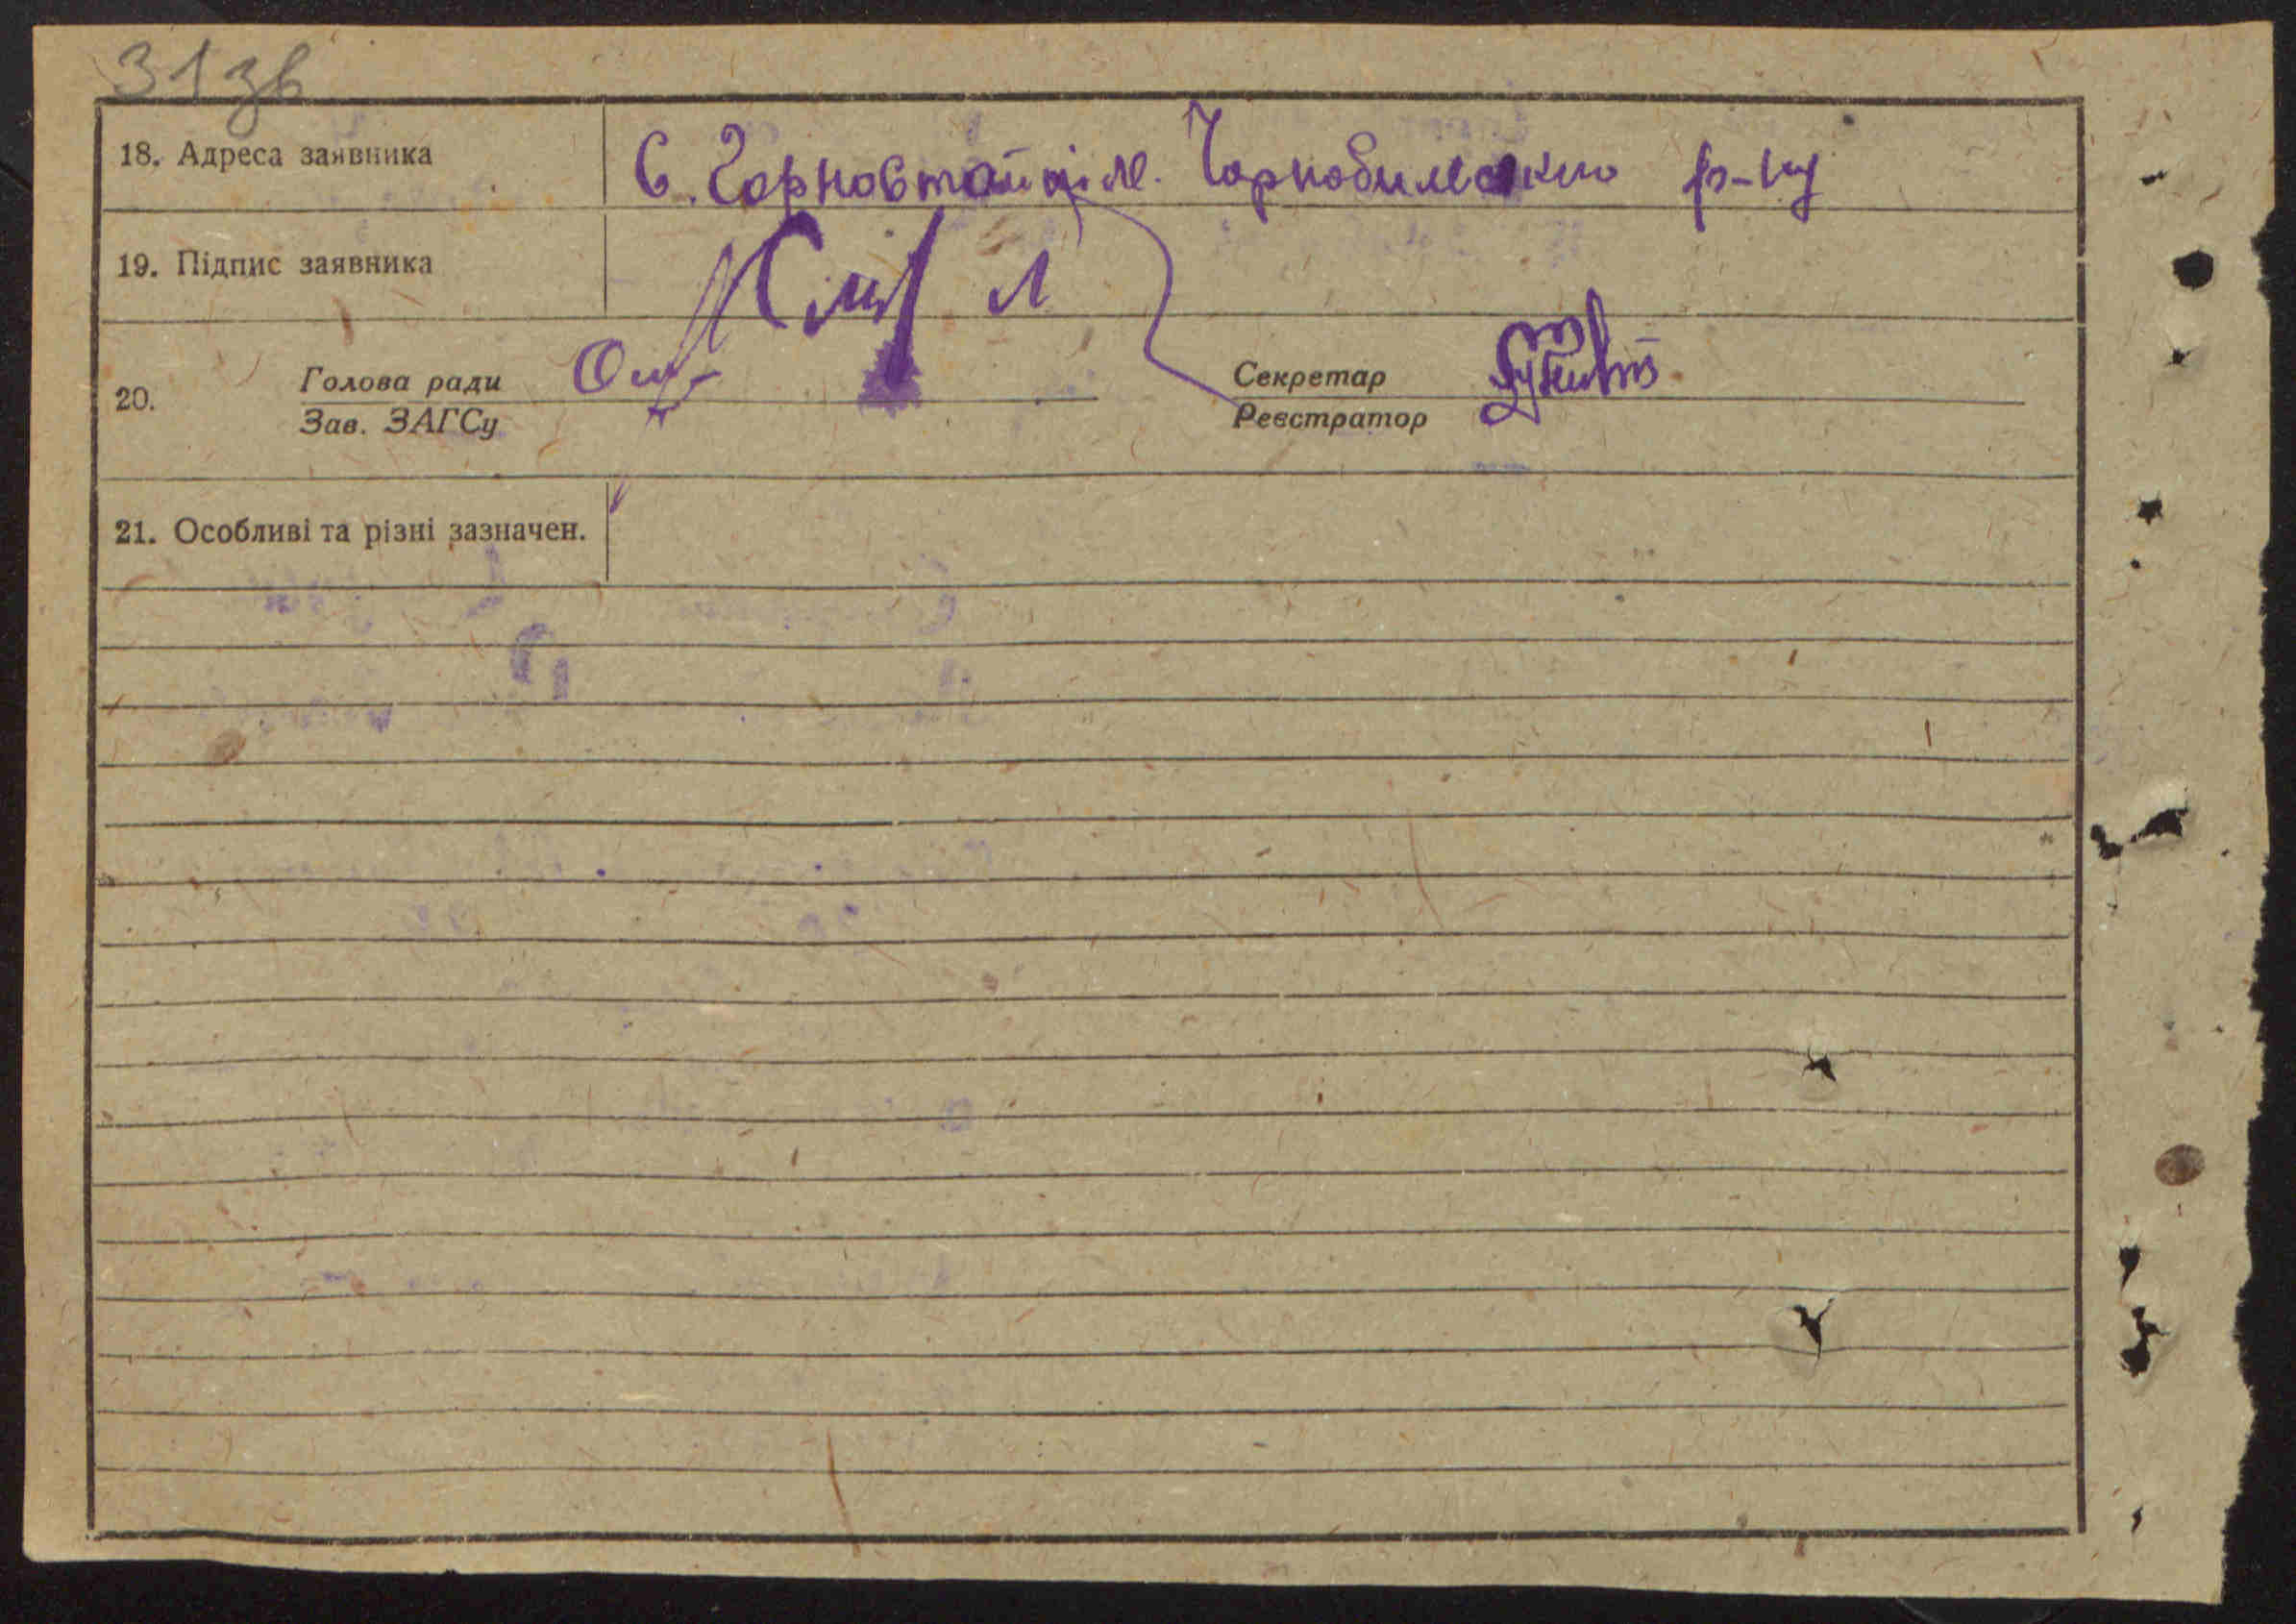 31 зв
18. Адреса заявника С. Горностайпіль Чорнобильського р-ну
19. Підпис заявника
20. Голова ради Секретар
Зав. ЗАГСу Реєстратор
21. Особливі та різні зазначен.